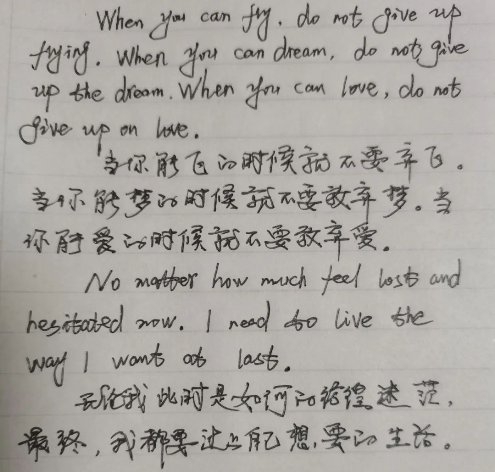 When you can fly, do not give up
flying. When you can dream, do not give
up the dream. When you can love, do not
give up on love.
当你能飞的时候就不要弃飞。
当你能梦的时候就不要放弃梦。当
你能爱的时候就不要放弃爱。
No matter how much feel losts and
hesitated now. I need to live the
way I wants at last.
无论我此时是如何的彷徨迷茫,
最终,我都要过上自己想要的生活。